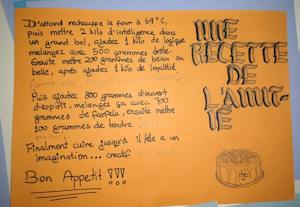 D'abord rechauffe le four à 69°C,
puis mettre 2 kilo d'intelligence dans
un grand bol, ajoutez 1 kilo de logique
melangez avec 500 grammes drôle.
Ensuite metre 200 grammes de beau ou
belle, après ajoutez 1 kilo de loyalitié
Puis ajoutez 800 grammes d'ouvert
d'esprit, melangez ça avec 700
grammes de farfelu, ensuite mettre
100 grammes de tendre
Finalment cuire jusqu'à il/elle a un
imagination... creatif
Bon Appetit !!!
UNE
RECETTE
DE
L'AMIT-
IE